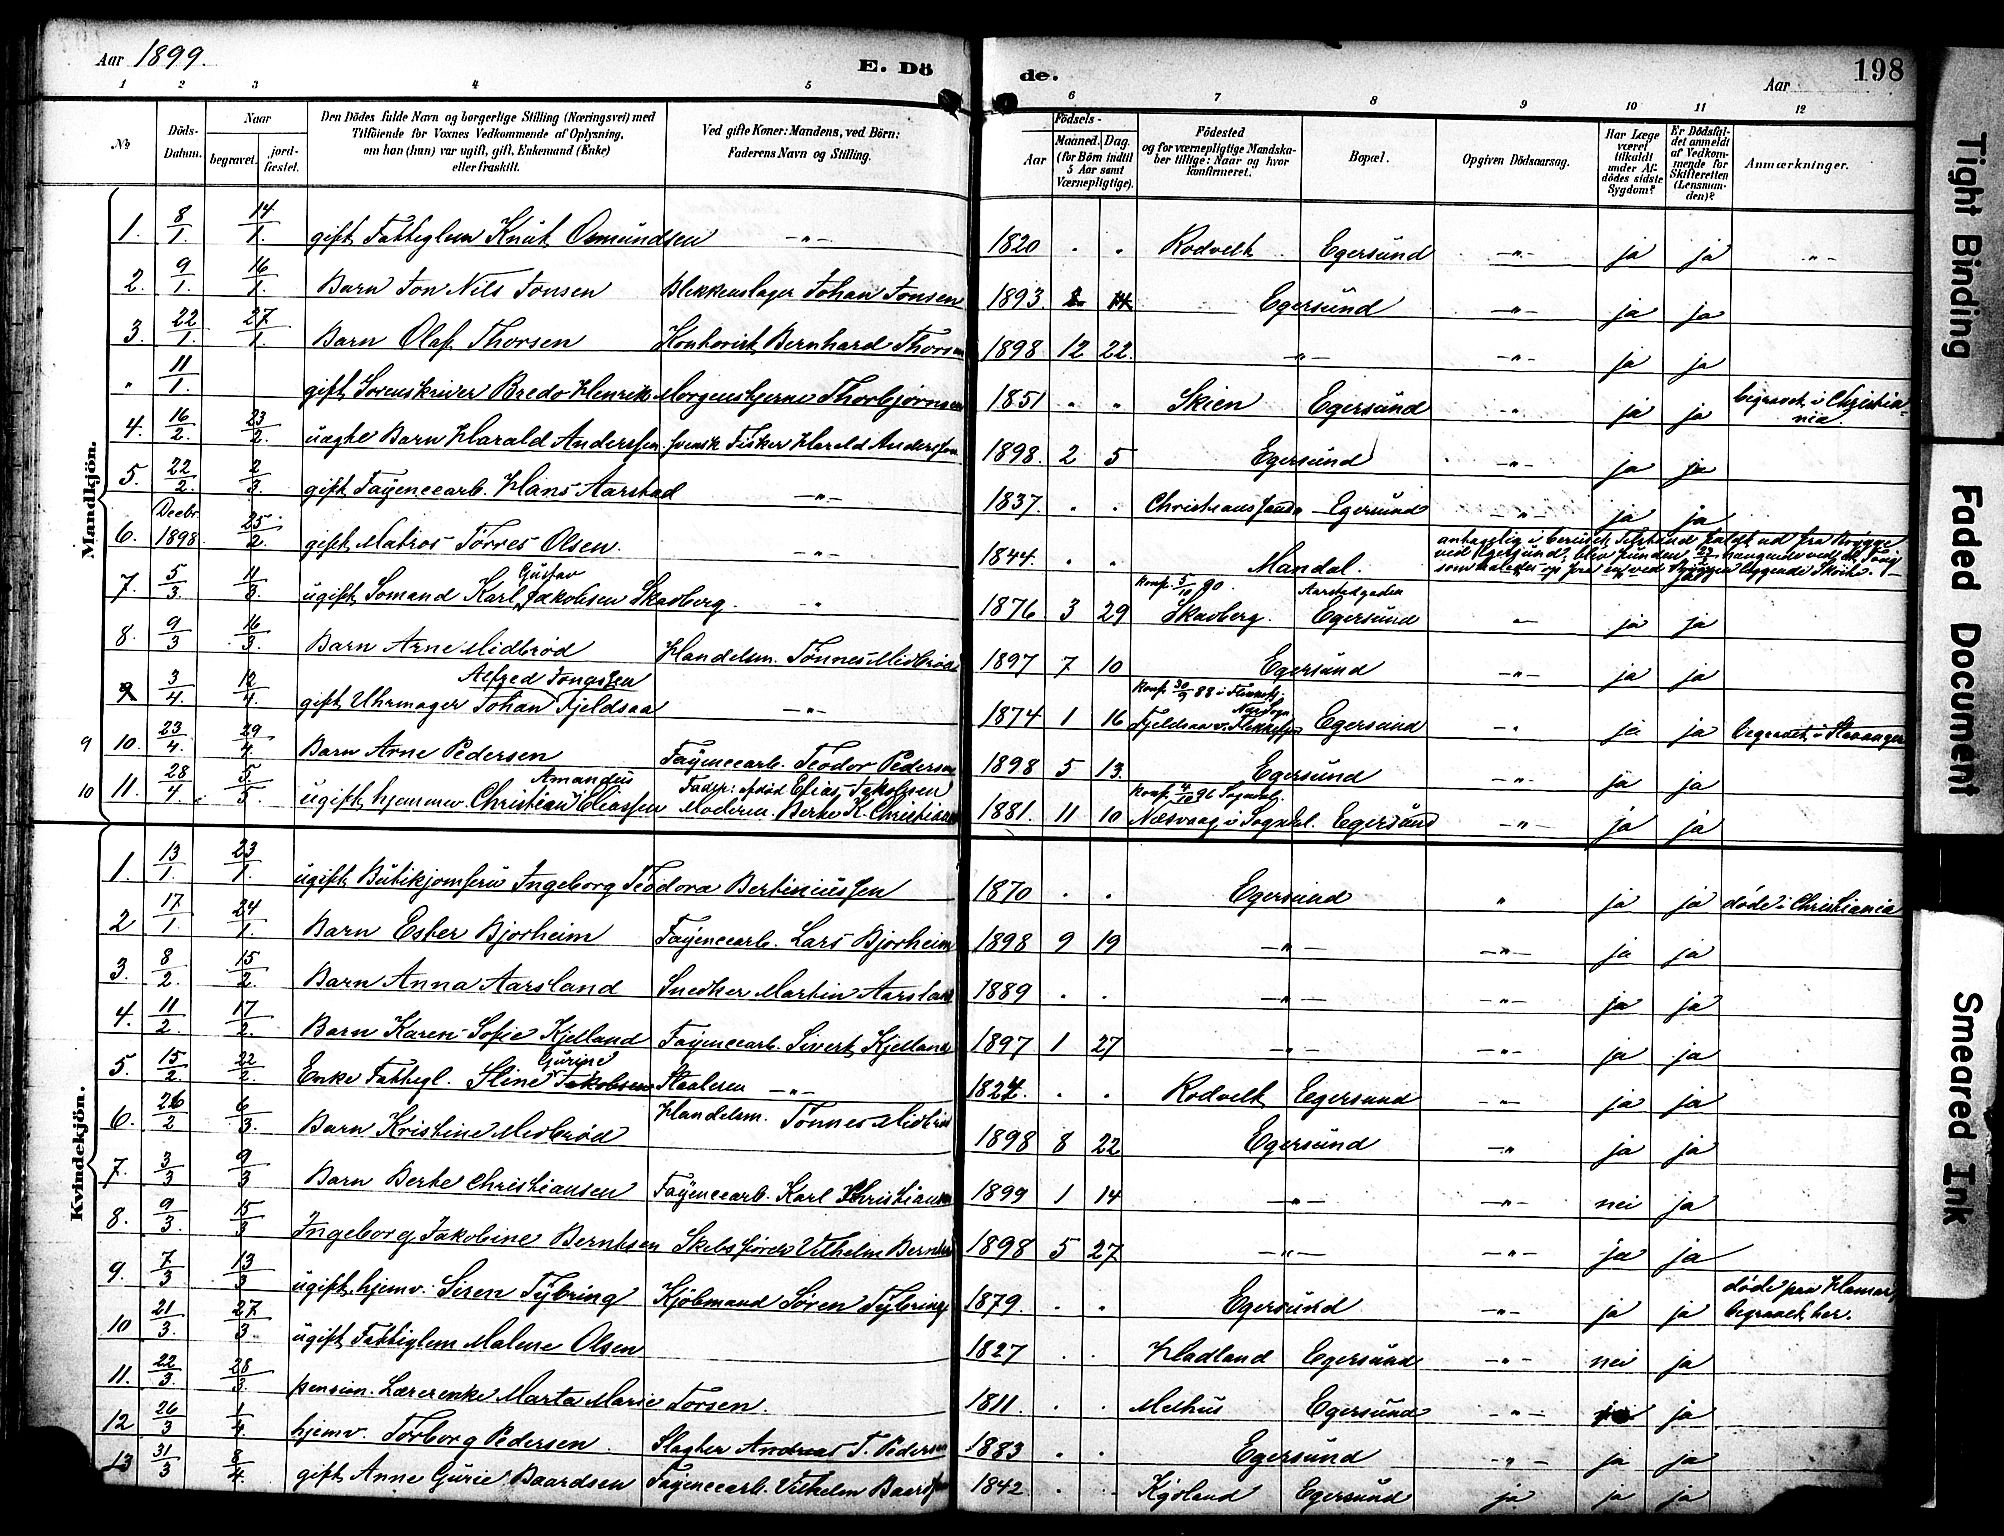 Aar 1899. E. Dö de. Aar 198
1 2 3 4 5 6 7 8 9 10 11 12
No Döds-Datum. Naar begravet. jordfæstet. Den Dödes fulde Navn og borgerlige Stilling (Næringsvei) med Tilföiende for Voxnes Vedkommende af Oplysning, om han (hun) var ugift, gift, Enkemand (Enke) eller fraskilt. Ved gifte Koner: Mandens, ved Börn: Faderens Navn og Stilling. Födsels- Aar Maaned. Dag. (for Börn indtil 5 Aar samt Værnepligtige). Födested og for værnepligtige Mandskaber tillige: Naar og hvor konfirmeret. Bopæl. Opgiven Dödsaarsag. Har Læge været tilkaldt under Afdödes sidste Sygdom? Er Dödsfaldet anmeldt af Vedkommende for Skifteretten (Lensmanden)? Anmærkninger.
Mandkjön.
1. 8/1. 14/1. gift Fattiglem Knut Osmundsen -"- 1820 " " Rodvelt Egersund -"- ja ja -"-
2. 9/1. 16/1. Barn Jon Nils Jonsen Blikkenslager Johan Jonsen 1893. Egersund -"- ja ja
3. 22/1. 27/1. Barn Olaf Thorsen Bernhard Thorsen 1898 12 22. -"- -"- ja ja
" 11/1. gift Sorenskriver Bredo Henrik Morgenstjerne Thorbjørnsen 1851 " " Skien Egersund -"- ja ja begravet i Christiania.
4. 16/2. 23/2. uægte Barn Harald Anderssen. svensk Fisker Harald Andersson 1898. 2 5 Egersund -"- ja ja
5. 22/2. 2/3. gift Fayencearb. Hans Aarstad -"- 1837. " " Christianssand Egersund -"- ja ja
6. Decbr 1898 25/2. gift Matros Tørres Olsen. -"- 1844. " " Mandal.
antagelig i beruset Tilstand faldt ud fra Brygge
7. 5/3. 11/3. ugift Sømand Karl Gustav Jakobsen Skadberg. " 1876 3 29 Konf. 5/10 90. Skadberg. Aarstadgaden Egersund -"- ja ja
8. 9/3. 16/3. Barn Arne Midbrød Handelsm. Tønnes Midbrød 1897 7 10 Egersund -"- ja ja
9 3/4. 12/4. gift Uhrmager Johan Alfred Fjeldsaa -"- 1874 1 16 Konf. 30/9 88 i Egersund -"- ja ja begravet i Stavanger
9 10. 23/4. 29/4. Barn Arne Pedersen Fayencearb. Teodor Pedersen 1898 5 13. Egersund -"- ja ja
10 11. 28/4. 5/5. ugift hjemmev. Christian Amandus Eliassen Fader: Elias Jakobsen Moderen. Berte K. Christiansen 1881. 11 10 Konf. 4/10 96 Sogndal. Næsvaag i Sogndal. Egersund -"- ja ja
Kvindekjön.
1. 13/1. 23/1. ugift Butikjomfru Ingeborg Teodora Bertiniussen 1870 " " Egersund " ja ja døde i Christiania
2 17/1. 24/1. Barn Ester Bjorheim Fayencearb. Lars Bjorheim 1898 9 19 -"- -"- ja ja
3. 8/2. 15/2. Barn Anna Aarsland Snedker Martin Aarsland 1889 " " -"- -"- ja ja
4. 11/2. 17/2. Barn Karen Sofie Kjelland Fayencearb. Sivert Kjelland 1897 1 27 -"- -"- ja ja
5. 15/2. 22/2. Enke Fattigl. Stine Gurine Jakobsen Staalesen -"- 1824. " " Rodvelt Egersund -"- ja ja
6. 26/2 6/3. Barn Kristine Midbrød Handelsm. Tønnes Midbrød 1898 8 22 Egersund -"- ja ja
7. 3/3 9/3. Barn Berte Christiansen Fayencearb. Karl Christiansen 1899 1 14 -"- -"- nei ja
8. 9/3. 15/3 Ingeborg Jakobine Berntsen Skibsfører Vilhelm Berntsen 1898 5 27 -"- -"- ja ja
9. 7/3 13/3 ugift hjemv. Siren Tybring Kjøbmand Søren Tybring 1879. " " Egersund -"- ja ja døde paa Hamar, begravet her.
10 21/3. 27/3. ugift Fattiglem Malene Olsen 1827 " " Hadland Egersund -"- nei ja
11. 22/3 28/3. pension. Lærerenke Marta Marie Torsen. 1811. " " Melhus Egersund -"- ja
12 26/3 1/4 hjemv. Torborg Pedersen. Slagter Andreas T. Pedersen 1883 " " Egersund -"- ja ja
13 31/3 8/4. gift Anne Gurie Baardsen Fayencearb. Vilhelm Baardsen 1842 " " Egersund ja ja ja
Tight Binding
Faded Document
Smeared Ink